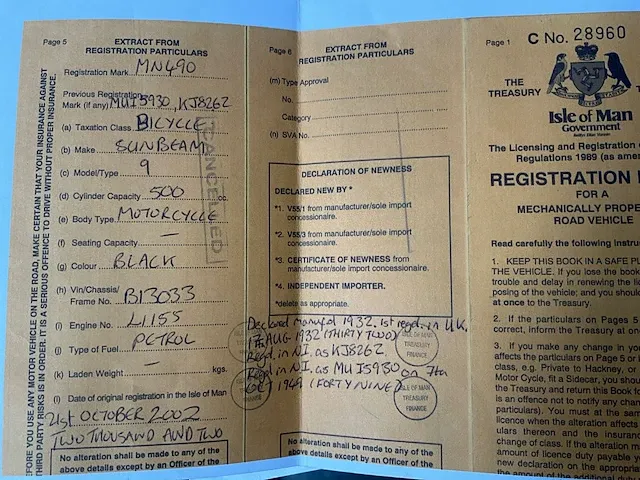 FORE YOU USE ANY MOTOR VEHICLE ON THE ROAD, MAKE CERTAIN THAT YOUR INSURANCE AGAINST
THIRD PARTY RISKS IS IN ORDER. IT IS A SERIOUS OFFENCE TO DRIVE WITHOUT PROPER INSURANCE.
Page 5
EXTRACT FROM
REGISTRATION PARTICULARS
Registration Mark MN490
Previous Registration
Mark (if any) MUI5930, KJ8262
(a) Taxation Class BICYCLE
(b) Make SUNBEAM
(c) Model/Type 9
(d) Cylinder Capacity 500 cc.
(e) Body Type MOTORCYCLE
(f) Seating Capacity —
(g) Colour BLACK
(h) Vin/Chassis/
Frame No. B13033
(i) Engine No. L1155
(j) Type of Fuel PETROL
(k) Laden Weight — kgs.
(l) Date of original registration in the Isle of Man
21st OCTOBER 2002
TWO THOUSAND AND TWO
No alteration shall be made to any of the
above details except by an Officer of the
CANCELLED
Page 6
EXTRACT FROM
REGISTRATION PARTICULARS
(m) Type Approval
No.
Category
(n) SVA No.
DECLARATION OF NEWNESS
DECLARED NEW BY *
*1. V55/1 from manufacturer/sole import
concessionaire.
*2. V55/3 from manufacturer/sole import
concessionaire.
*3. CERTIFICATE OF NEWNESS from
manufacturer/sole import concessionaire.
*4. INDEPENDENT IMPORTER.
*delete as appropriate.
Declared manufd 1932. 1st regd. in U.K.
AUG 1932 (THIRTY TWO)
Regd. in NI. as KJ8262
Regd. in NI. as MUI5930 on 7th
OCT 1949 (FORTY NINE)
ISLE OF MAN
TREASURY
FINANCE
ISLE OF MAN
TREASURY
FINANCE
No alteration shall be made to any of the
above details except by an Officer of the
Page 1
C No. 28960
THE
TREASURY
THE
Isle of Man
Government
Reiltys Ellan Vannin
The Licensing and Registration
Regulations 1989 (as amen
REGISTRATION
FOR A
MECHANICALLY PROPE
ROAD VEHICLE
Read carefully the following instru
1. KEEP THIS BOOK IN A SAFE PL
THE VEHICLE. If you lose the book
trouble and delay in renewing the li
posing of the vehicle; and you should
at once to the Treasury.
2. If the particulars on Pages 5 o
correct, inform the Treasury at on
3. If you make any change in your
affects the particulars on Page 5 or
class, e.g. Private to Hackney, or
Motor Cycle, fit a Sidecar, you should
the Treasury and return this Book fo
is an offence not to notify any chang
particulars). You must at the same
licence when the alteration affects
ulars thereon and the insurance
change of class. If the alteration ma
amount of licence duty payable y
new declaration on the appropriate
the amount of the additional duty